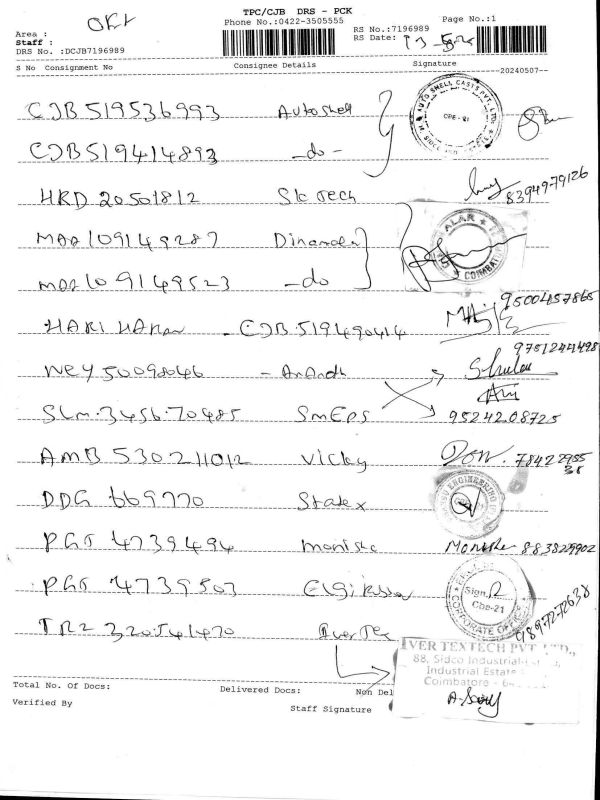 TPC/CJB DRS - PCK
Phone No.:0422-3505555
Page No.:1
Area :
Staff :
DRS No. :DCJB7196989
RS No.:7196989
RS Date:
S No Consignment No Consignee Details Signature
20240507--
CJB 519536993 Autoshell
CJB 519414893 -do-
HRD 20501812 SK Tech 8394979126
MAA 109149287
MAA 109149523 -do
HARI HARAN - CJB 519490414 9500457865
50098046 - Anandh
SLM. 3456 70485 9524208725
AMB 530211012 Vicky
DDG 669770 Statex
PGT 4739494 Monisha
PGT 4739503 Elgi Rubber
320541470 Iver Tex
AUTO SHELL CASTS PVT. LTD.
CBE - 21
ALAR
COIMBAT
ENGINEERING
CORPORATE OFFICE
Sign.
Cbe-21
IVER TEXTECH PVT LTD.,
88, Sidco Industrial
Industrial Estate
Coimbatore - 64
Total No. Of Docs: Delivered Docs: Non Del
Verified By Staff Signature